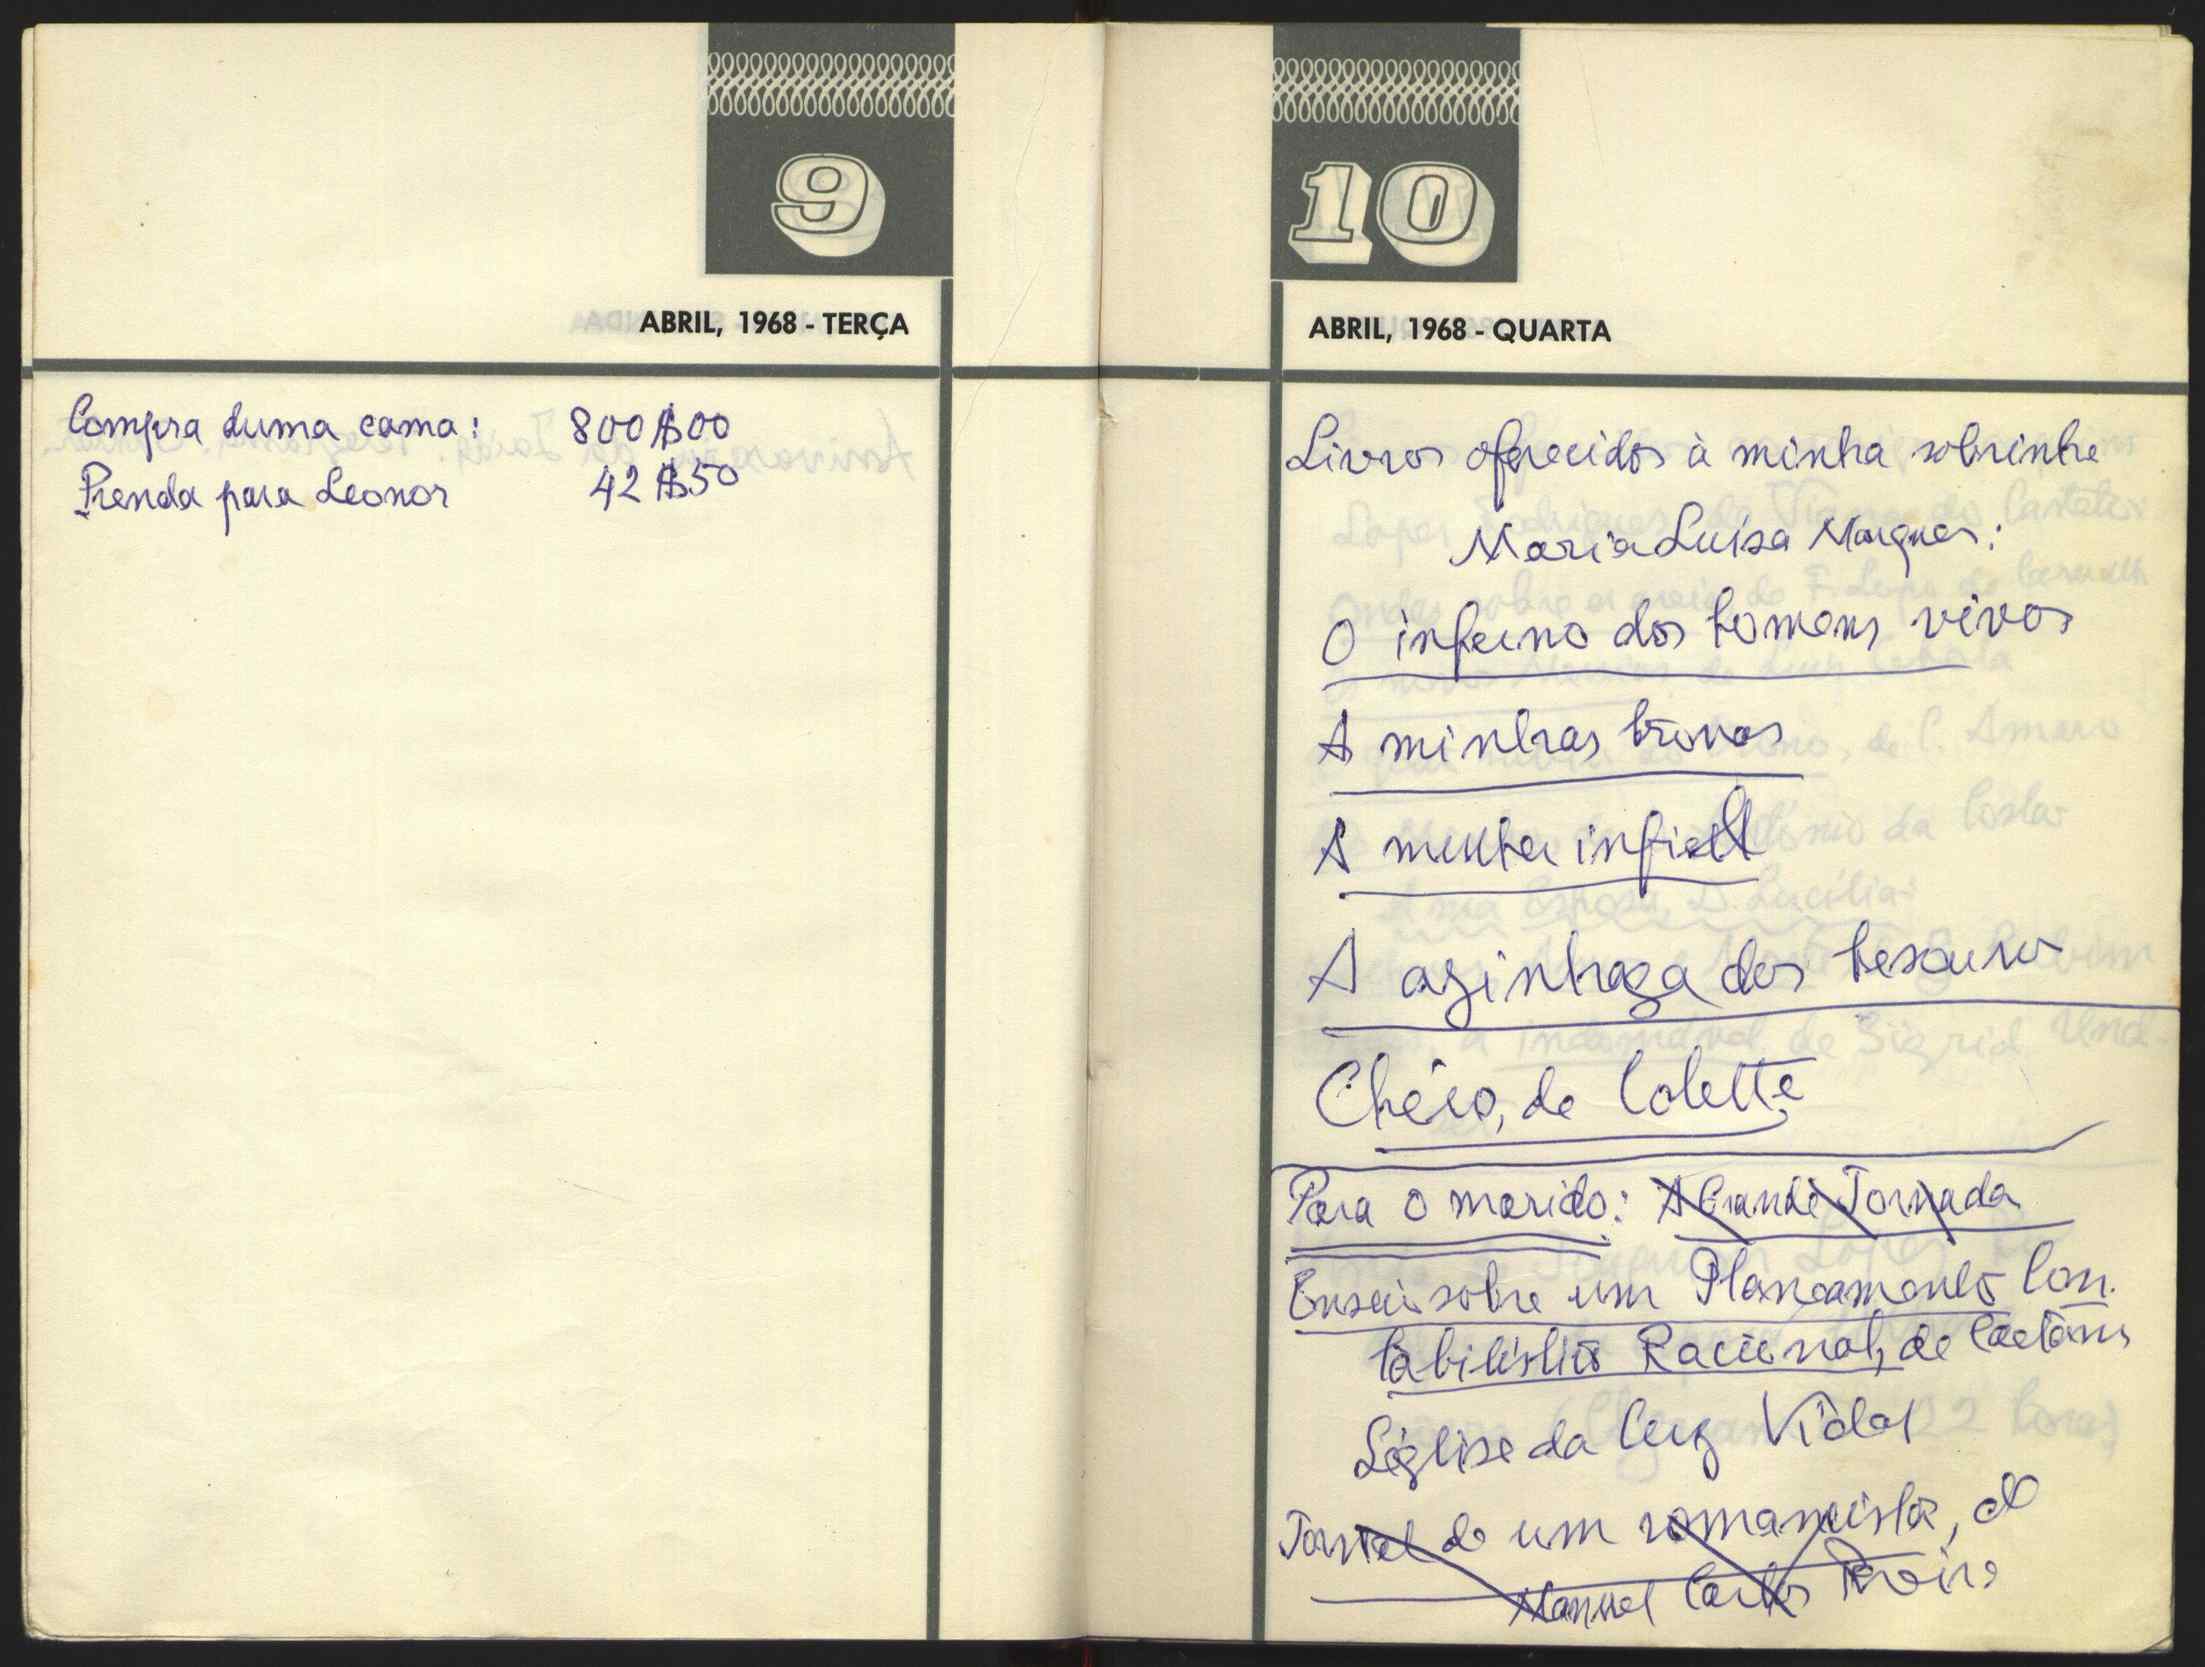 9
ABRIL, 1968 - TERÇA
Compra duma cama: 800$00
Prenda para Leonor 42$50
10
ABRIL, 1968 - QUARTA
Livros oferecidos à minha sobrinha
Maria Luísa Marques:
O inferno dos homens vivos
A minhas
A mulher infiel
A azinhaga dos besouros
Chéri, de Colette
Para o marido: A Grande Jornada
Ensaio sobre um Planeamento Con-
tabilístico Racional, de Caetano
Léglise da Cruz Vidal
Jornal de um romancista, de
Manuel Carlos